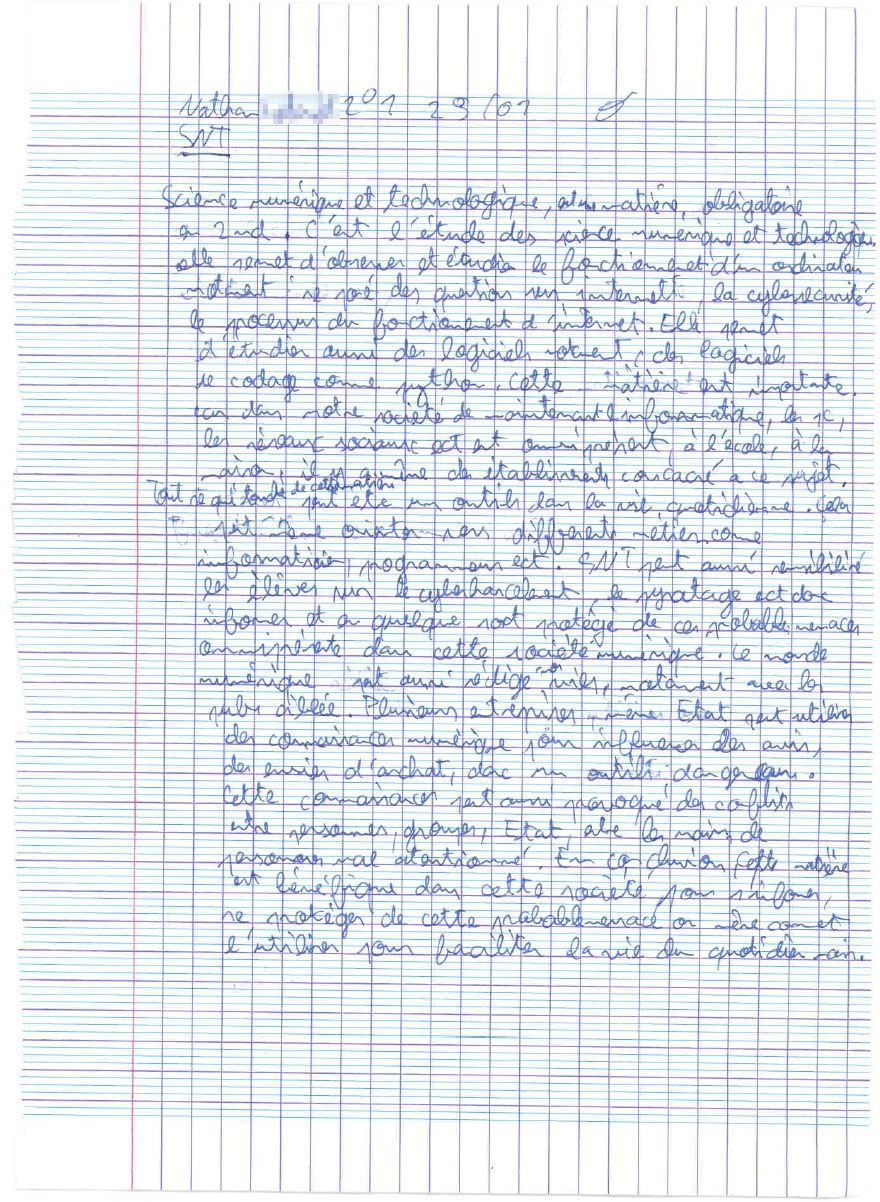 Nathan 201 29/01
SNT
Science numérique et technologique, est une matière, obligatoire
en 2nd. C'est l'étude des science numérique et technologique,
elle permet d'observer et étudier le fonctionnement d'un ordinateur
notament se posé des question sur internett, la cybersecurité,
le processus du fonctionement d'internet. Elle permet
d'étudier aussi des logiciels notament, des logiciels
de codage come python. Cette matière est importante.
car dans notre société de maintenant l'informatique, les pc,
les réseaux sociaux ect est omniprésent, à l'école, à la
maison, il y a même des établissements concacré a ce sujet.
Tout ce qui de cette matière
peut etre un outils dans la vie quotidienne. Cela
peut même orienter vers different metier come
informaticien, programmeur ect. SNT peut aussi sensibilisé
les élèves sur le cyberharcelement, le pyratage ect donc
informer et en quelque sort protégé de ces probable menaces
omnipresente dans cette société numérique. Le monde
numérique peut aussi notament avec les
pubs ciblée. Plusieurs entreprises même Etat peut utiliser
des connaissances numérique pour influencer des avis,
des envies d'anchat, donc un outils dangereux.
Cette connaissances peut aussi provoqué des conflits
entre personnes, groupes, Etat, entre les mains de
personnes mal intentionné. En conclusion cette matière
est bénéfique dans cette société pour s'informer,
se protéger de cette probable menace ou même coment
l'utiliser pour faciliter la vie du quotidien